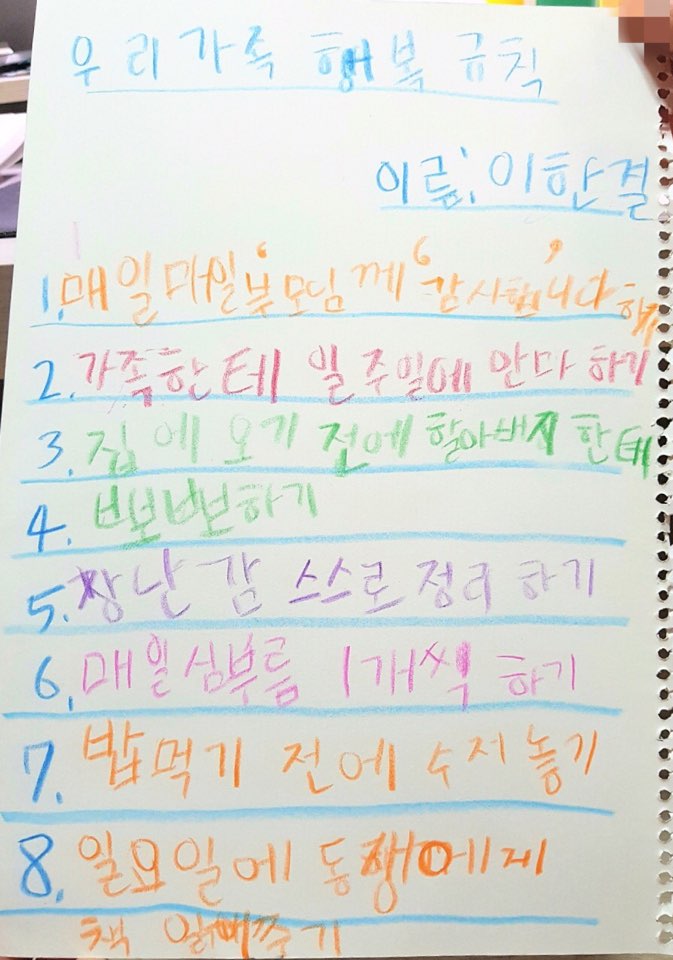 우리 가족 행복 규칙
이름: 이한결
1. 매일마일 부모님께 '감사합니다' 하기
2. 가족한테 일주일에 안마 하기
3. 집에 오기 전에 할아버지 한테
4. 뽀뽀하기
5. 장난감 스스로 정리 하기
6. 매일 심부름 1개씩 하기
7. 밥먹기 전에 수저 놓기
8. 일요일에 동생에게
책 읽어주기